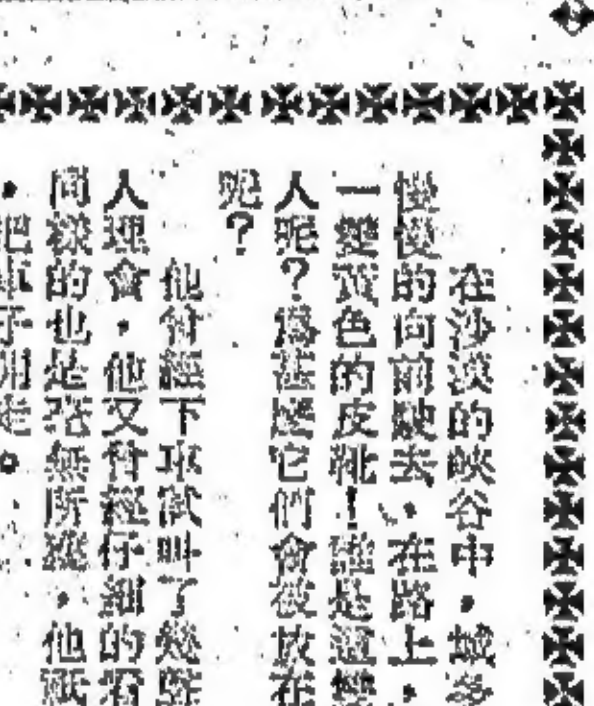 在沙漠的峽谷中，城
慢慢的向前駛去，在路上，
一雙黃色的皮靴！誰是這雙
人呢？為甚麼它們會被放在
呢？
他曾經下車試叫了幾聲
人理會，他又曾經仔細的看
同樣的也是毫無所獲，他祇
，把車子開走。